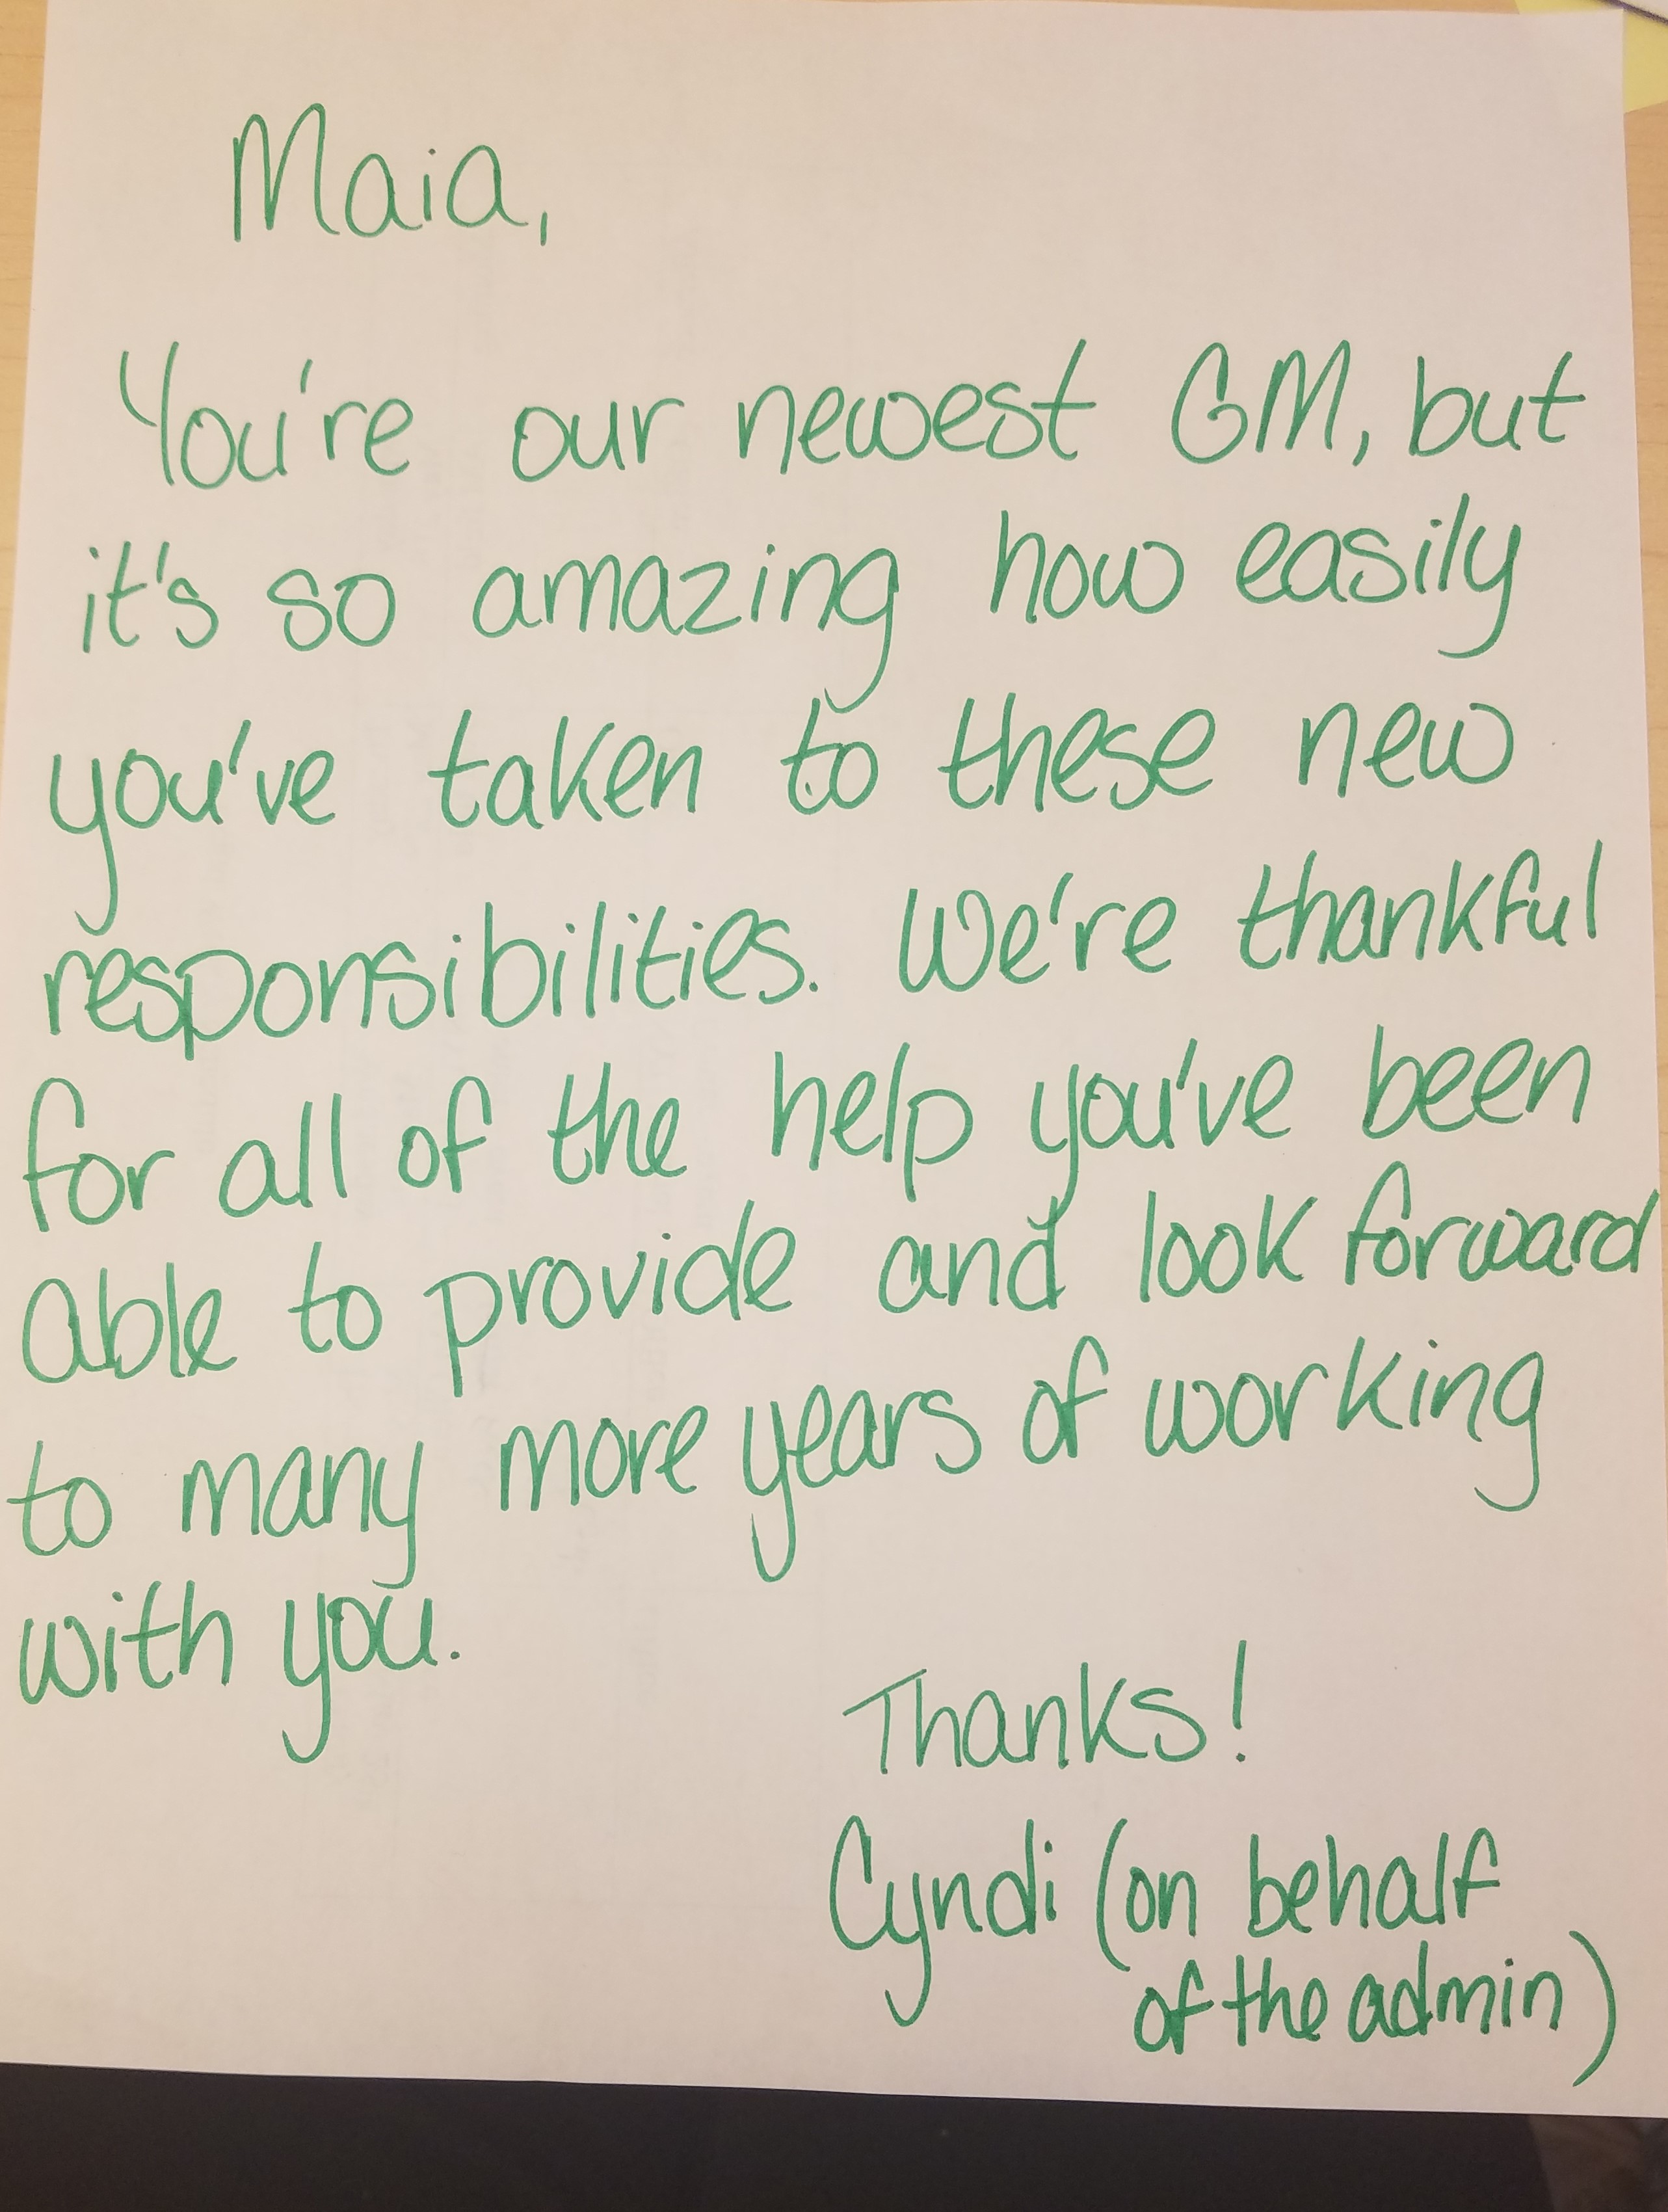 Maia,
You're our newest GM, but
it's so amazing how easily
you've taken to these new
responsibilities. We're thankful
for all of the help you've been
able to provide and look forward
to many more years of working
with you.
Thanks!
Cyndi (on behalf
of the admin)